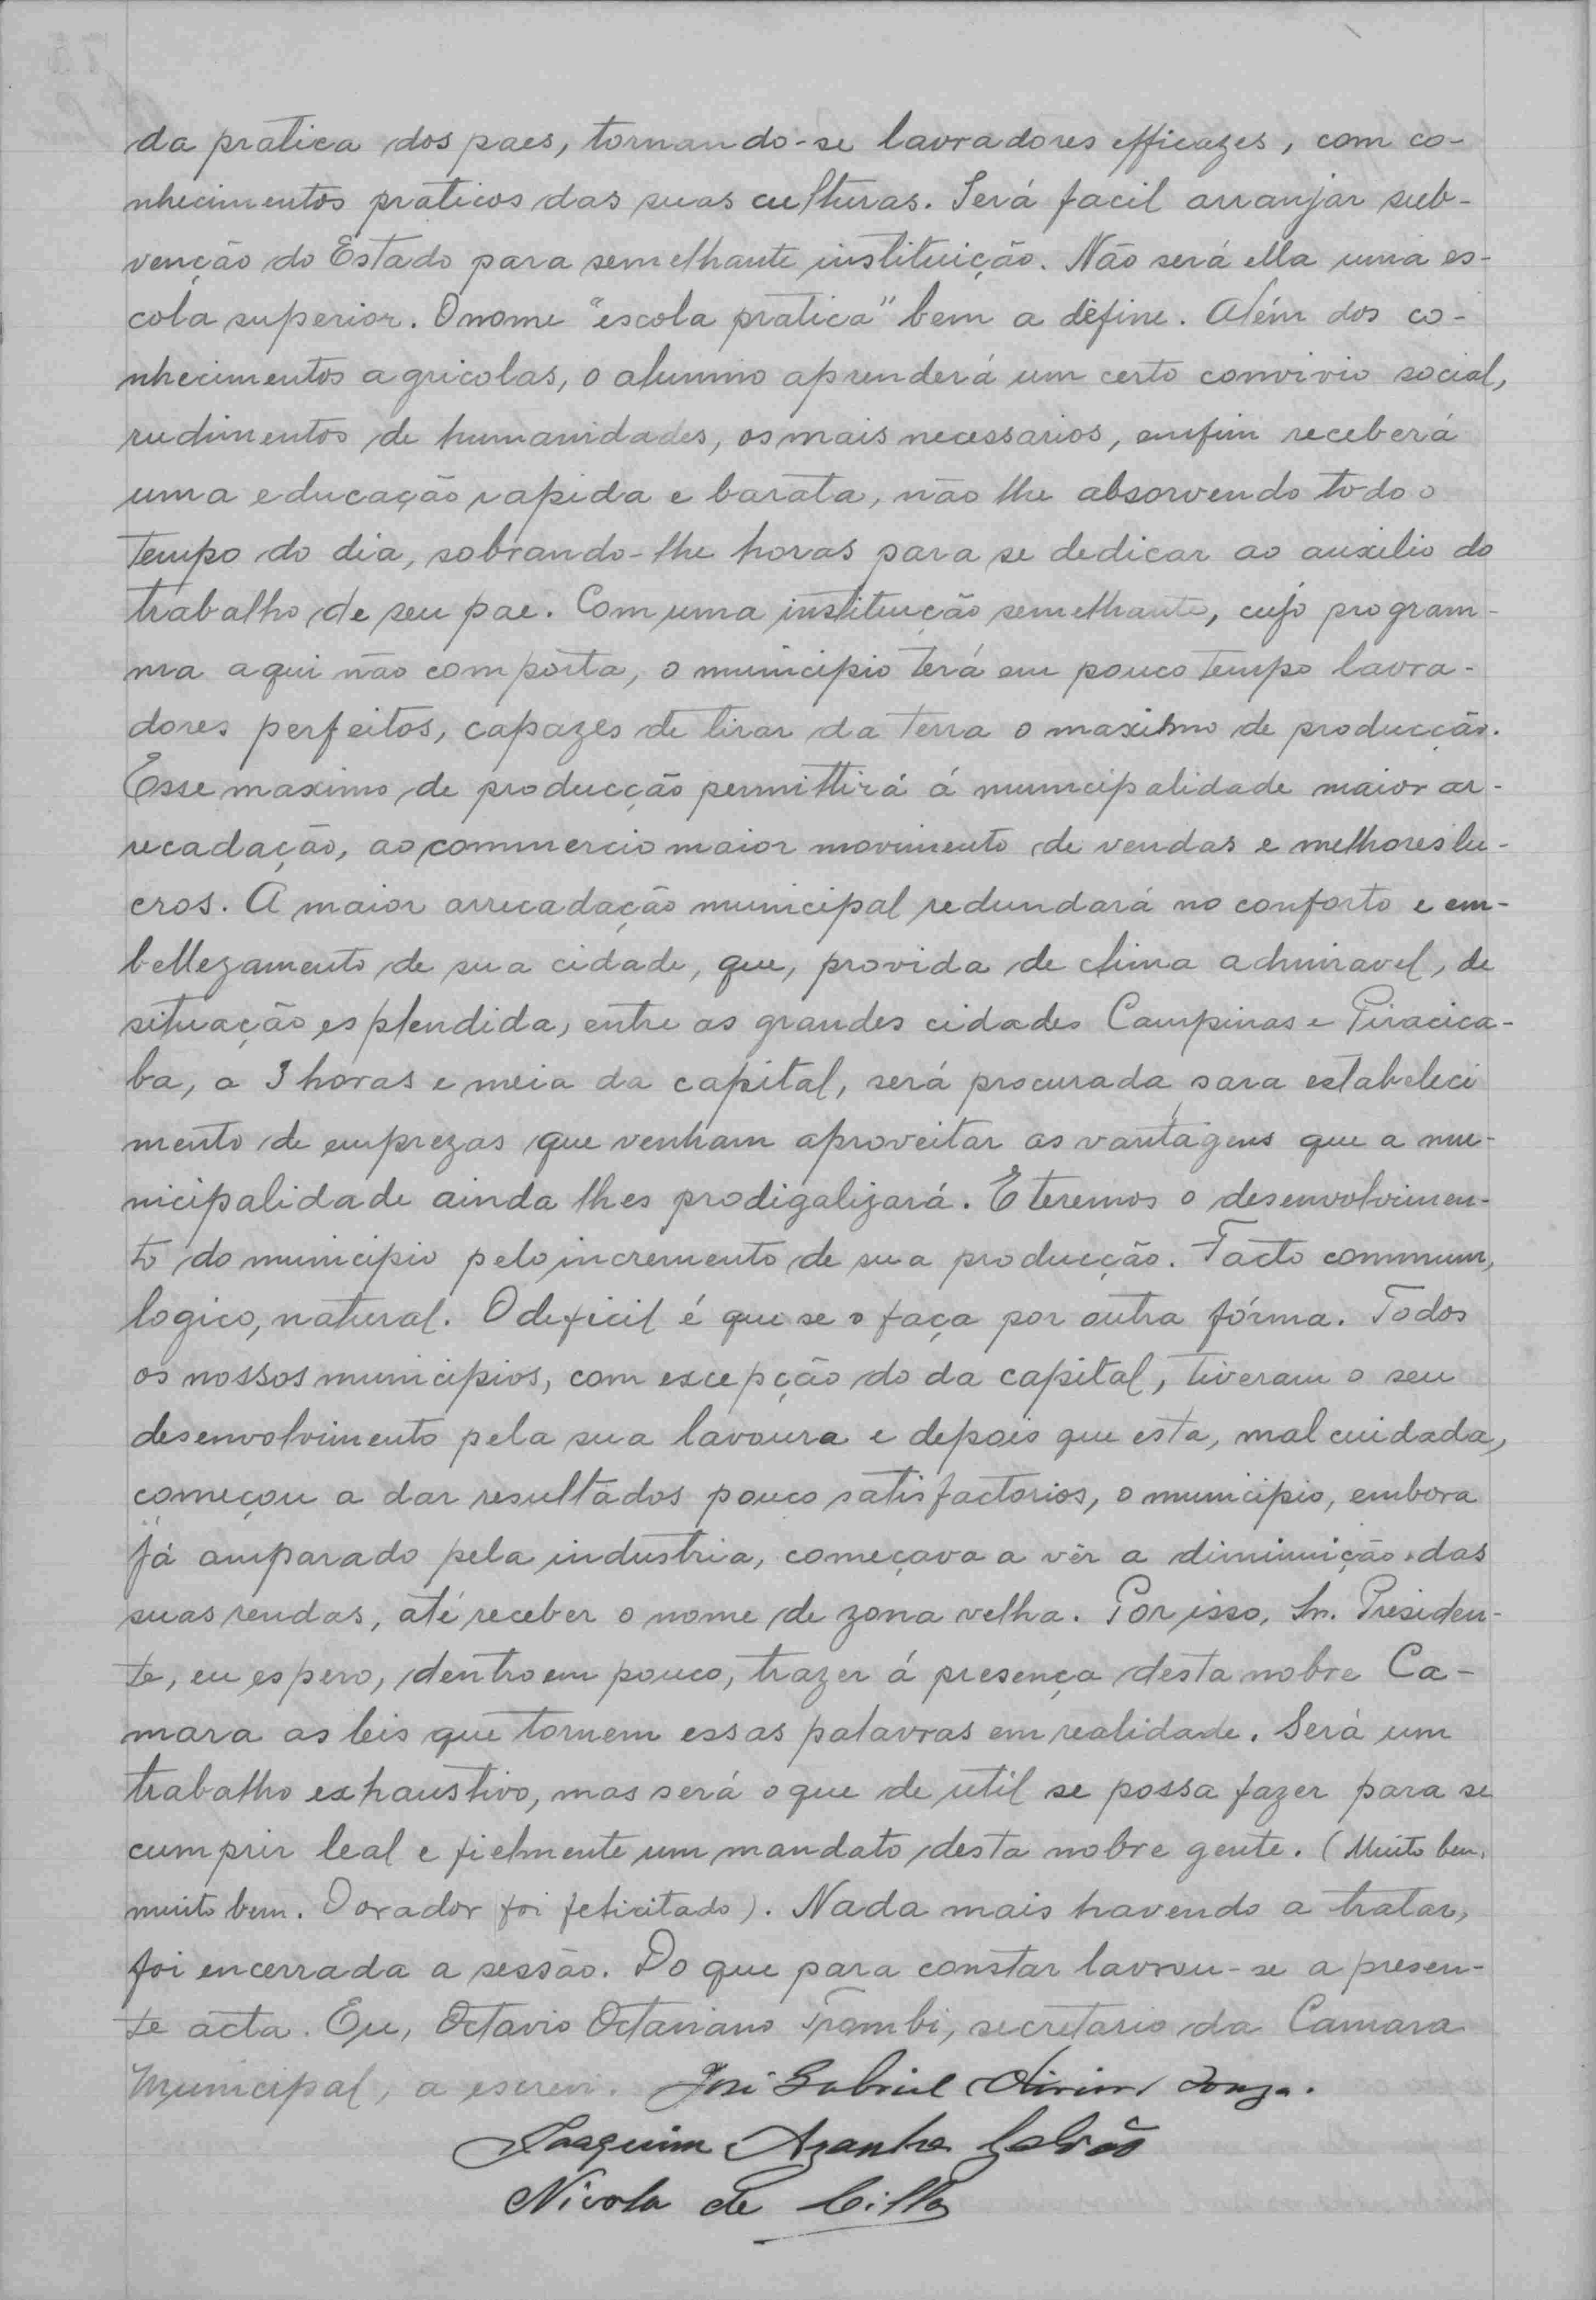 da pratica dos paes, tornando-se lavradores efficazes, com co-
nhecimentos praticos das suas culturas. Será facil arranjar sub-
venção do Estado para semelhante instituição. Não será ella uma es-
cola superior. O nome "escola pratica" bem a define. Além dos co-
nhecimentos agricolas, o alumno aprenderá um certo convivio social,
rudimentos de humanidades, os mais necessarios, emfim receberá
uma educação rapida e barata, não lhe absorvendo todo o
tempo do dia, sobrando-lhe horas para se dedicar ao auxilio do
trabalho de seu pae. Com uma instituição semelhante, cujo program-
ma aqui não comporta, o municipio terá em pouco tempo lavra-
dores perfeitos, capazes de tirar da terra o maximo de producção.
Esse maximo de producção permittirá á municipalidade maior ar-
recadação, ao commercio maior movimento de vendas e melhores lu-
cros. A maior arrecadação municipal redundará no conforto e em-
bellezamento de sua cidade, que, provida de clima admiravel, de
situação esplendida, entre as grandes cidades Campinas e Piracica-
ba, a 3 horas e meia da capital, será procurada para estabeleci
mento de emprezas que venham aproveitar as vantagens que a mu-
nicipalidade ainda lhes prodigalizará. E teremos o desenvolvimen-
to do municipio pelo incremento de sua producção. Facto commum,
logico, natural. O deficil é que se o faça por outra fórma. Todos
os nossos municipios, com excepção do da capital, tiveram o seu
desenvolvimento pela sua lavoura e depois que esta, mal cuidada,
começou a dar resultados pouco satisfactorios, o municipio, embora
já amparado pela industria, começava a vêr a diminuição das
suas rendas, até receber o nome de zona velha. Por isso, Sr. Presiden-
te, eu espero, dentro em pouco, trazer á presença desta nobre Ca-
mara as leis que tornem essas palavras em realidade. Será um
trabalho exhaustivo, mas será o que de util se possa fazer para se
cumprir leal e fielmente um mandato desta nobre gente. (Muito bem,
muito bem. O orador foi felicitado). Nada mais havendo a tratar,
foi encerrada a sessão. Do que para constar lavrou-se a presen-
te acta. Eu, Octavio Octaviano Trombi, secretario da Camara
Municipal, a escrevi. José Gabriel Souza.
Joaquim Aranha Galvão
Nicola de Cillo